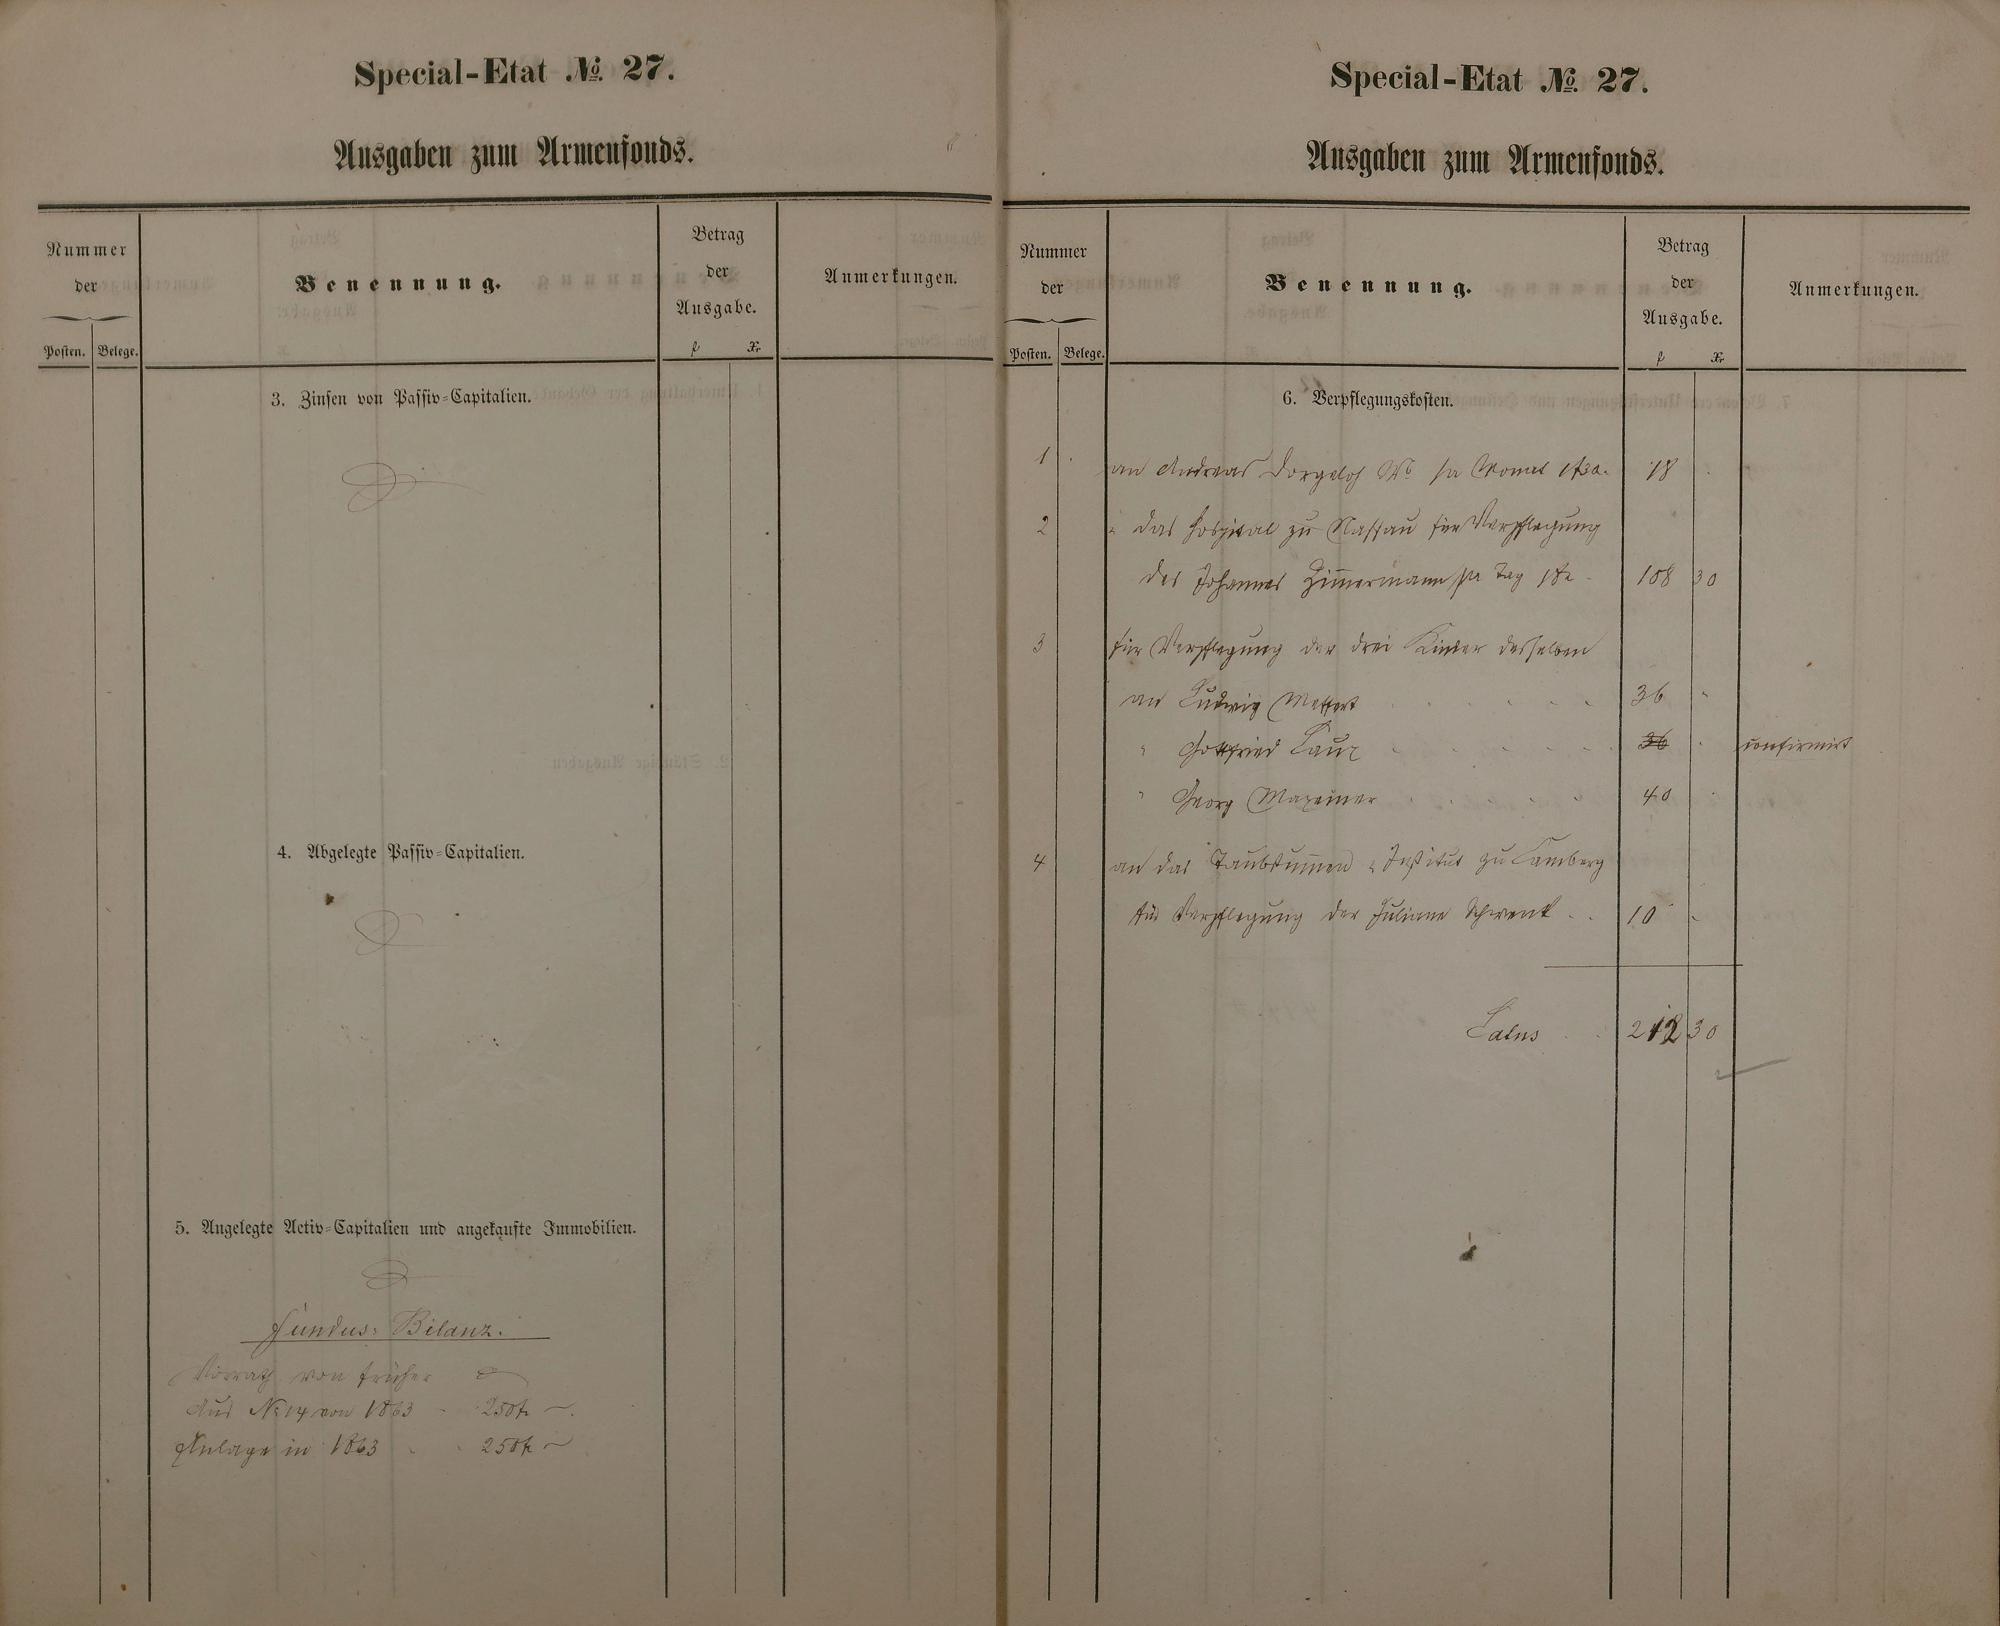 Special-Etat № 27.
Ausgaben zum Armenfonds.
Nummer
der
Posten. Belege.
Benennung.
Betrag
der
Ausgabe.
f Xr
Anmerkungen.
3. Zinsen von Passiv-Capitalien.
4. Abgelegte Passiv-Capitalien.
5. Angelegte Activ-Capitalien und angekaufte Immobilien.
Fundus-Bilanz.
Vorrath von früher
Aus № 14 von 1863 - 250 f -.
Anlage in 1863 - - 250 f -
Special-Etat № 27.
Ausgaben zum Armenfonds.
Nummer
der
Posten. Belege.
Benennung.
Betrag
der
Ausgabe.
f Xr
Anmerkungen.
6. Verpflegungskosten.
1 an Andreas Dorgeloh pr Monat 1 f 30 18
2 " das Hospital zu Nassau für Verpflegung
des Johannes Zimmermann pr Tag 18 108 30
3 für Verpflegung der drei Kinder desselben
an Ludwig Meffert 36 "
" Gottfried Laux 36 confirmirt
" Georg Maxeiner 40
4 an das Taubstummen-Institut zu Camberg
für Verpflegung der Juliane Schwenk . . 10 "
Latus 212 30